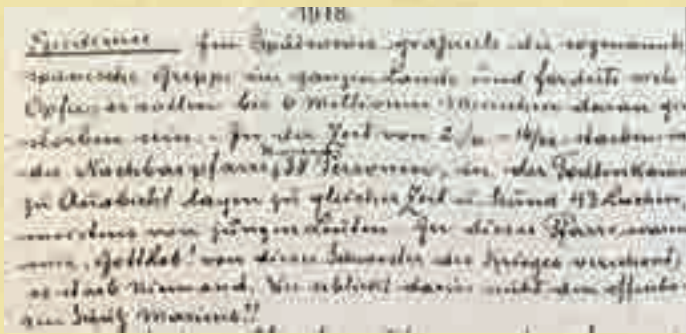 1918.
Epidemie Im Spätherbst grassierte die sogenannte
spanische Grippe im ganzen Lande und forderte viele
Opfer; es sollen bis 6 Millionen Menschen daran ge
storben sein. In der Zeit von 2/11 - 16/11 starben
die Nachbarpfarre 38 Personen, in der Todtenkammer
zu lagen zu gleicher Zeit 43 Leichen,
meistens von jungen Leuten. In dieser Pfarre waren
wir, Gottlob! von dieser des Krieges verschont,
es starb Niemand. Wer erblickt darin nicht den
Mariens!!